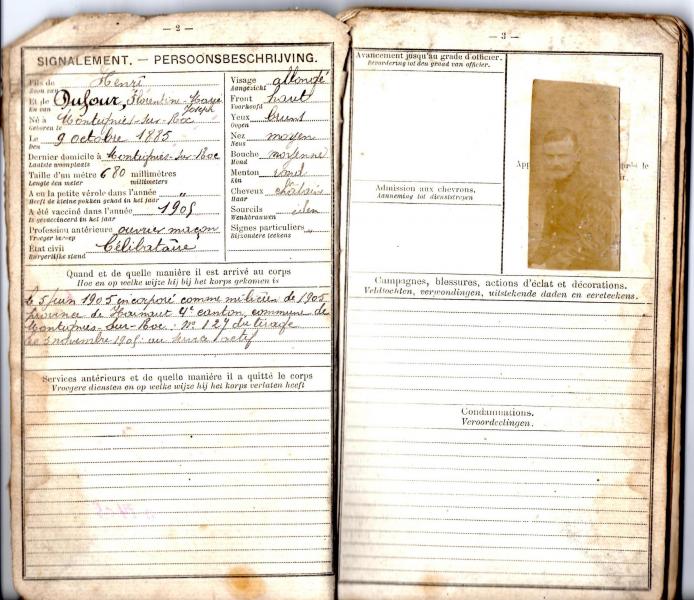 — 2 —
SIGNALEMENT. — PERSOONSBESCHRIJVING.
Fils de Henri
Zoon van
Et de Dufour, Florentine-Marie
En van Joseph
Né à Montignies-sur-Roc
Geboren te
Le 9 octobre 1885
Den
Dernier domicile à Montignies-sur-Roc
Laatste woonplaats
Taille d'un mètre 680 millimètres
Lengte één meter millimeters
A eu la petite vérole dans l'année "
Heeft de kleine pokken gehad in het jaar
A été vacciné dans l'année 1905
Is gevaccineerd in het jaar
Profession antérieure ouvrier maçon
Vroeger beroep
État civil Célibataire
Burgerlijke stand
Visage allongé
Aangezicht
Front haut
Voorhoofd
Yeux bruns
Oogen
Nez moyen
Neus
Bouche moyenne
Mond
Menton rond
Kin
Cheveux châtains
Haar
Sourcils idem
Wenkbrauwen
Signes particuliers "
Bijzondere teekens
Quand et de quelle manière il est arrivé au corps
Hoe en op welke wijze hij bij het korps gekomen is
Le 5 juin 1905 incorporé comme milicien de 1905
province de Hainaut 4e canton, commune de
Montignies-sur-Roc : No 127 du tirage
Le 3 novembre 1905 : au service actif
Services antérieurs et de quelle manière il a quitté le corps
Vroegere diensten en op welke wijze hij het korps verlaten heeft
— 3 —
Avancement jusqu'au grade d'officier.
Bevordering tot den graad van officier.
Admission aux chevrons.
Aanneming tot dienststrepen
Campagnes, blessures, actions d'éclat et décorations.
Veldtochten, verwondingen, uitstekende daden en eereteekens.
Condamnations.
Veroordeelingen.